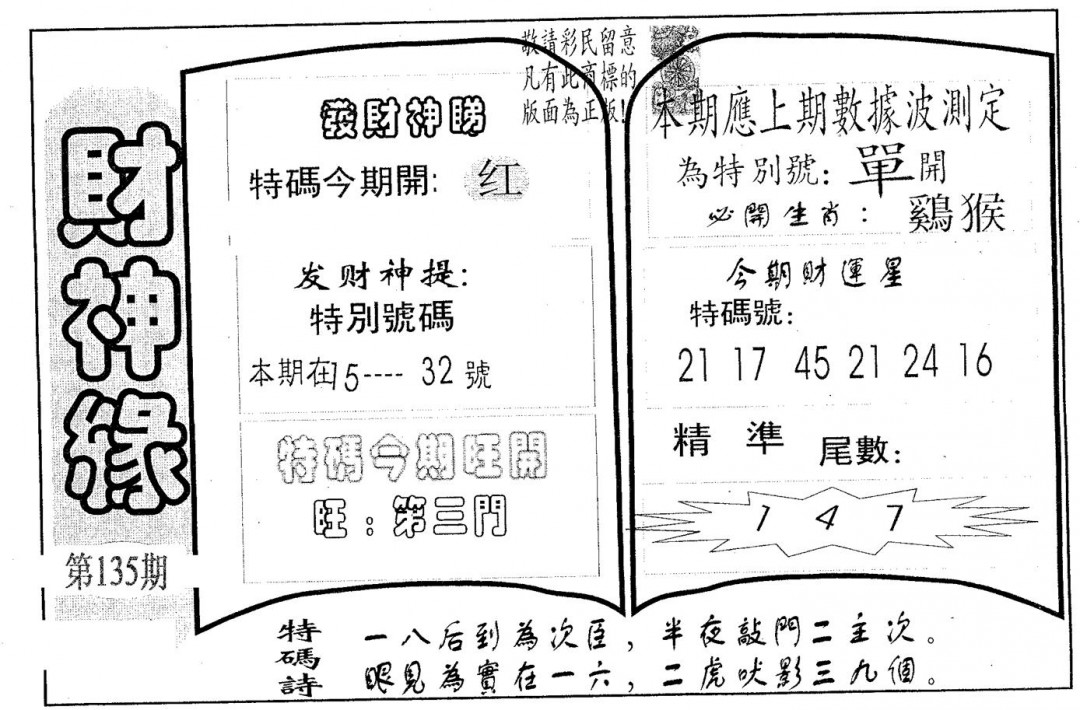 財神緣
第135期
敬請彩民留意
凡有此商標的
版面為正版!
發財神睇
特碼今期開: 红
发财神提:
特別號碼
本期在15---- 32 號
特碼今期旺開
旺:第三門
本期應上期數據波測定
為特別號: 單開
必開生肖: 鷄猴
今期財運星
特碼號:
21 17 45 21 24 16
精準 尾數:
1 4 7
特碼詩
一八后到為次臣,半夜敲門二主次。
眼見為實在一六,二虎吠影三九個。